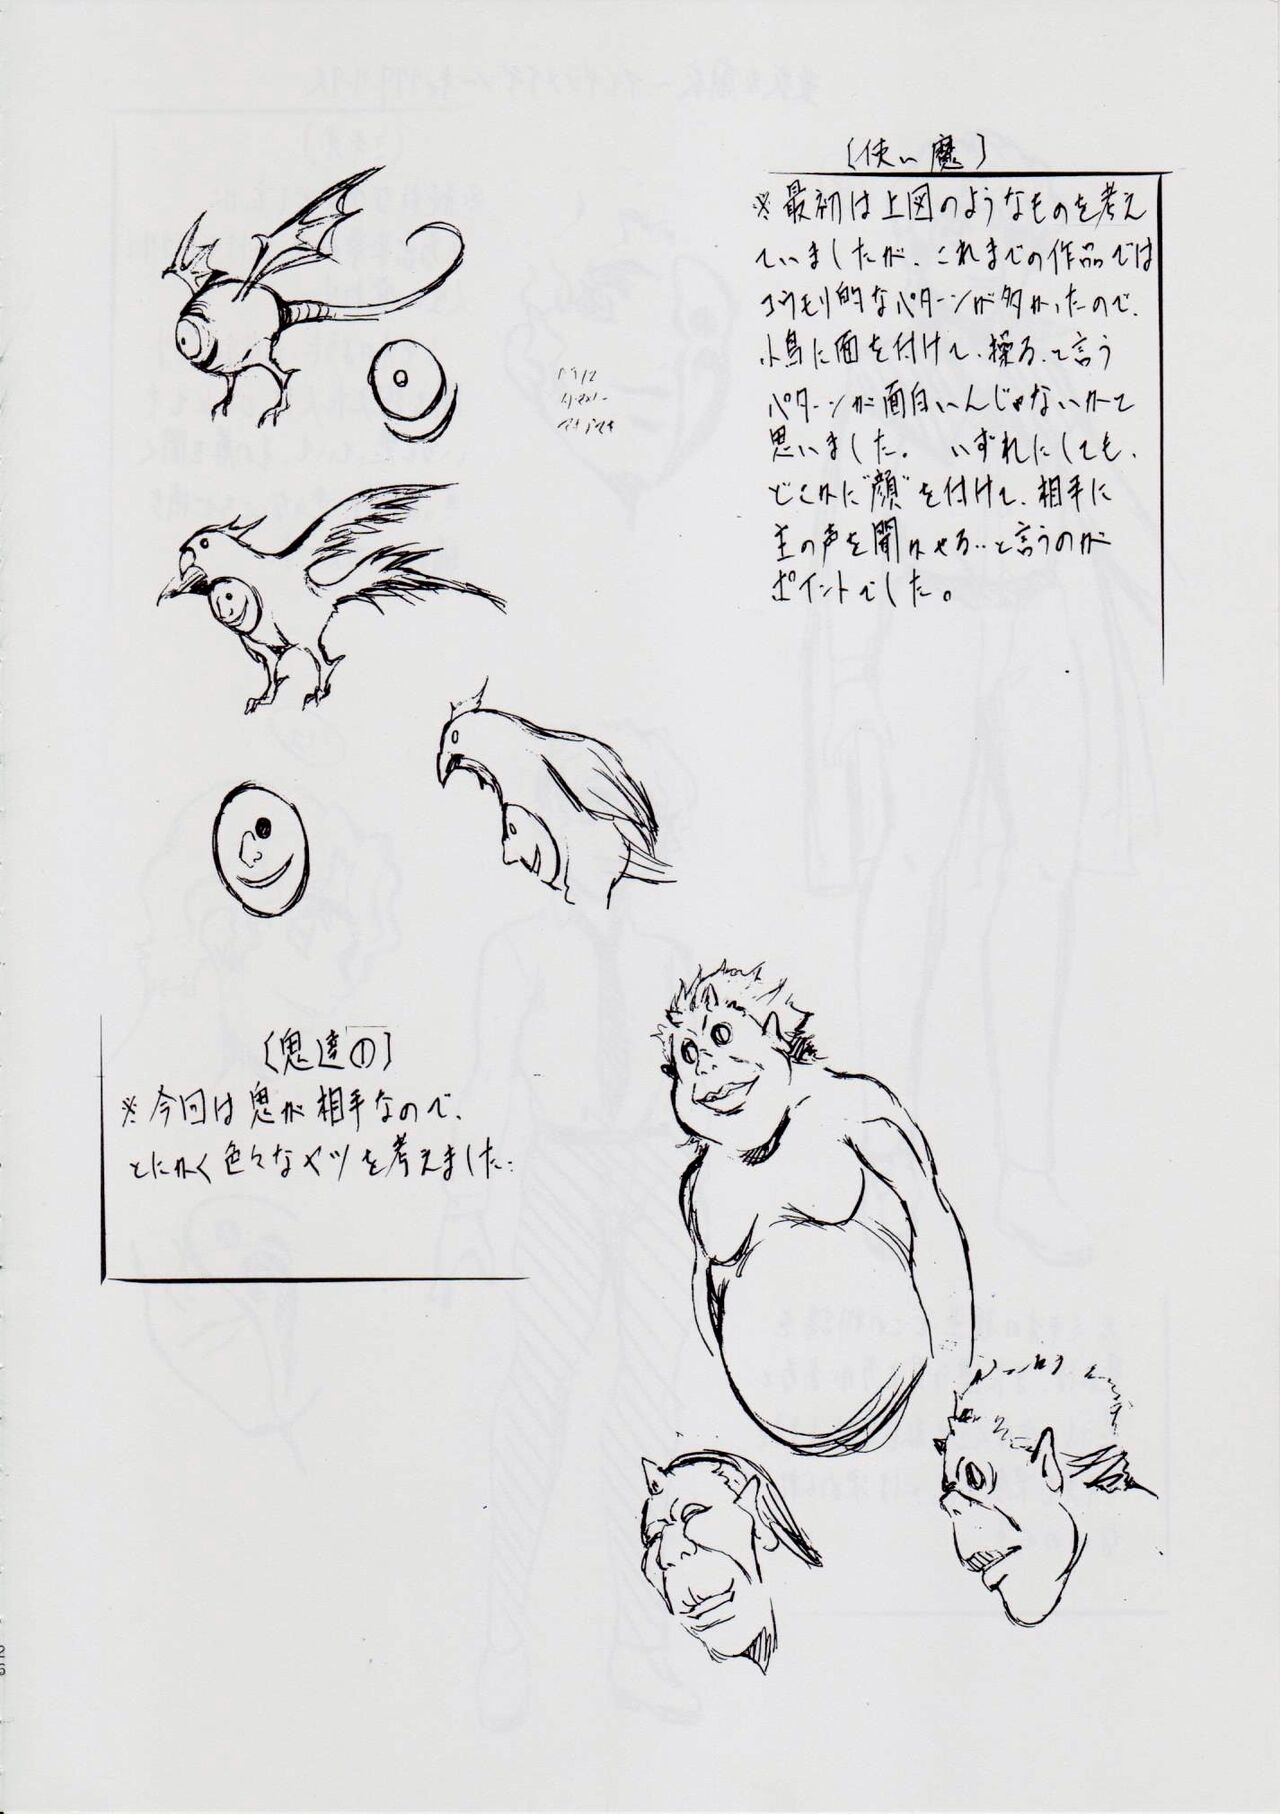 〔使い魔〕
※最初は上図のようなものを考え
ていましたが、これまでの作品では
コウモリ的なパターンが多かったので、
小鳥に面を付けて、操る、と言う
パターンが面白いんじゃないかと
思いました。 いずれにしても、
どこかに"顔"を付けて、相手に
主の声を聞かせる‥と言うのが
ポイントでした。
〔鬼達の①〕
※今回は鬼が相手なので、
とにかく色々なヤツを考えました‥
26